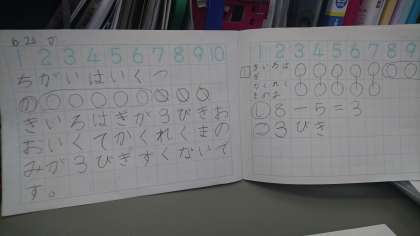 1 2 3 4 5 6 7 8 9 10
ちがいはいくつ
きいろはぎが3びきお
おいくてかくれくまの
みが3びぎすくないで
す。
1 2 3 4 5 6 7 8 9
きいろは
ぎ
かくれく
まのみ
し 8-5=3
こ 3びき